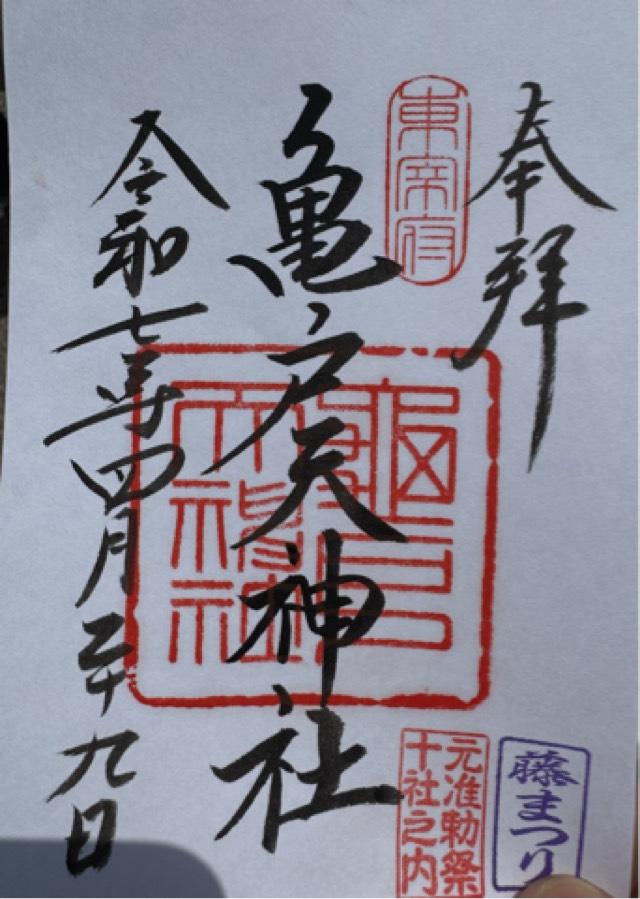 奉拝
東宰府
亀戸天神社
令和七年四月二十九日
元准勅祭
十社之内
藤まつり